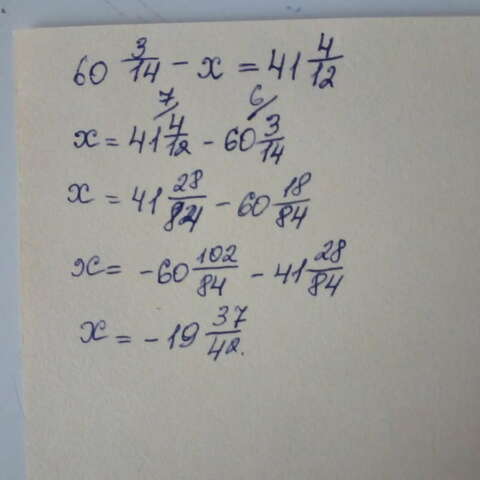 60 3/14 - x = 41 4/12
x = 41 4/12 7/ - 60 3/14 6/
x = 41 28/84 - 60 18/84
x = -60 102/84 - 41 28/84
x = -19 37/42.